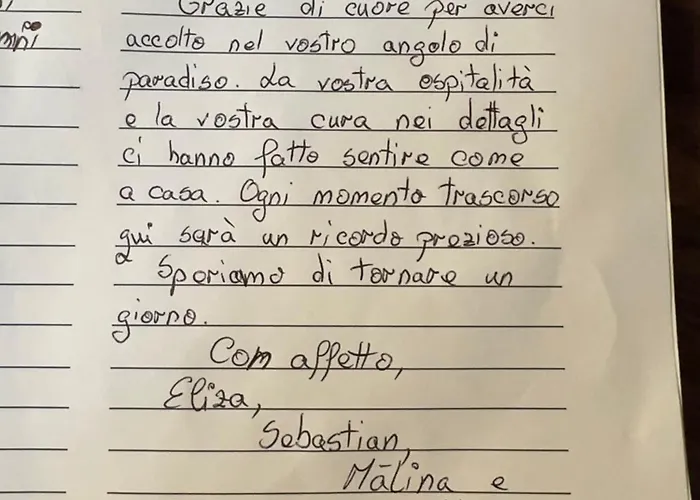 mpi
Grazie di cuore per averci
accolto nel vostro angolo di
paradiso. La vostra ospitalità
e la vostra cura nei dettagli
ci hanno fatto sentire come
a casa. Ogni momento trascorso
qui sarà un ricordo prezioso.
Speriamo di tornare un
giorno.
Com affetto,
Eliza,
Sebastian,
Mālina e